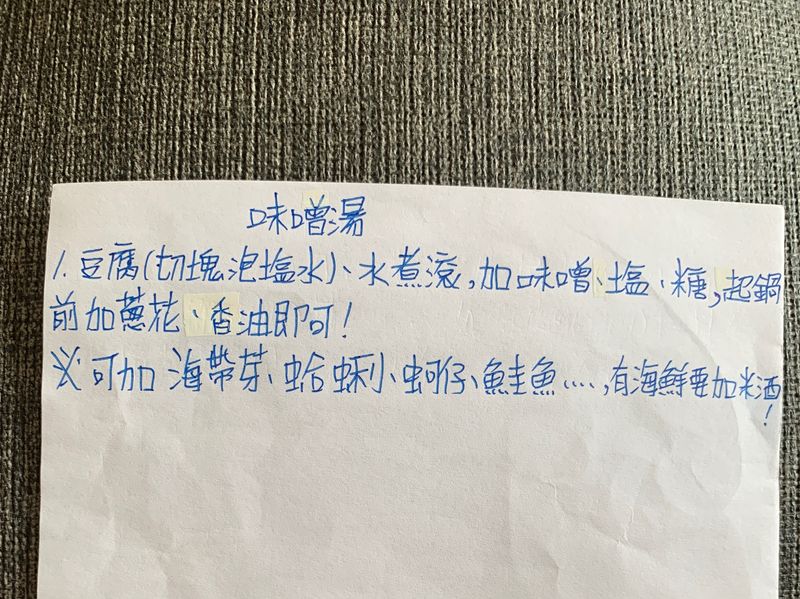 味噌湯
1. 豆腐(切塊泡塩水)、水煮滾,加味噌、塩、糖,起鍋
前加蔥花、香油即可!
※可加 海帶芽、蛤蜊、蚵仔、鮭魚....,有海鮮要加米酒!